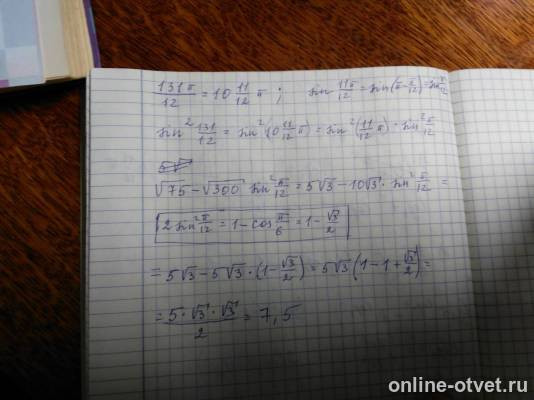 131π/12 = 10 11/12 π ; sin 11π/12 = sin(π - π/12) = sin π/12
sin² 131/12 = sin²(10 11/12 π) = sin²(11/12 π) = sin² π/12
√75 - √300 sin² π/12 = 5√3 - 10√3 · sin² π/12 =
2 sin² π/12 = 1 - cos π/6 = 1 - √3/2
= 5√3 - 5√3 · (1 - √3/2) = 5√3 (1 - 1 + √3/2) =
= 5 · √3 · √3 / 2 = 7,5
online-otvet.ru